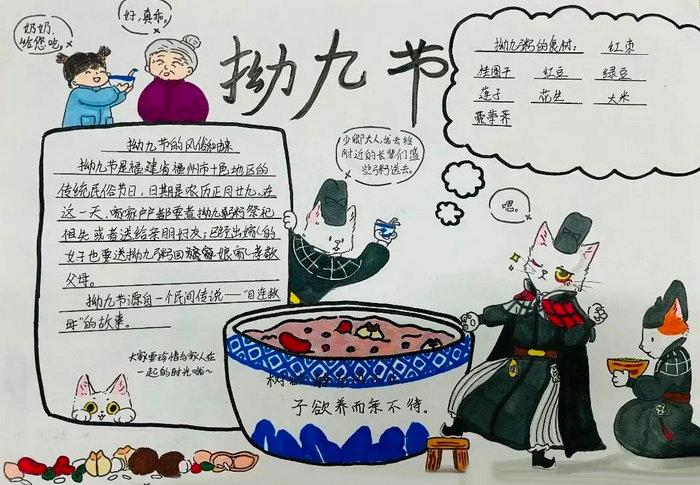 奶奶,
给您吃。
好,真乖。
拗九节
拗九粥的食材: 红枣
桂圆干 红豆 绿豆
莲子 花生 大米
栗 荸荠
少卿大人,我去给
附近的长辈们盛
些粥送去。
嗯。
拗九节的风俗和由来
拗九节是福建省福州市十邑地区的
传统民俗节日,日期是农历正月廿九。在
这一天,家家户户都要煮拗九粥祭祀
祖先或者送给亲朋好友;已经出嫁的
女子也要送拗九粥回娘家,孝敬
父母。
拗九节源自一个民间传说——“目连救
母”的故事。
大家要珍惜与家人在
一起的时光哦~
树欲静而风不
子欲养而亲不待。